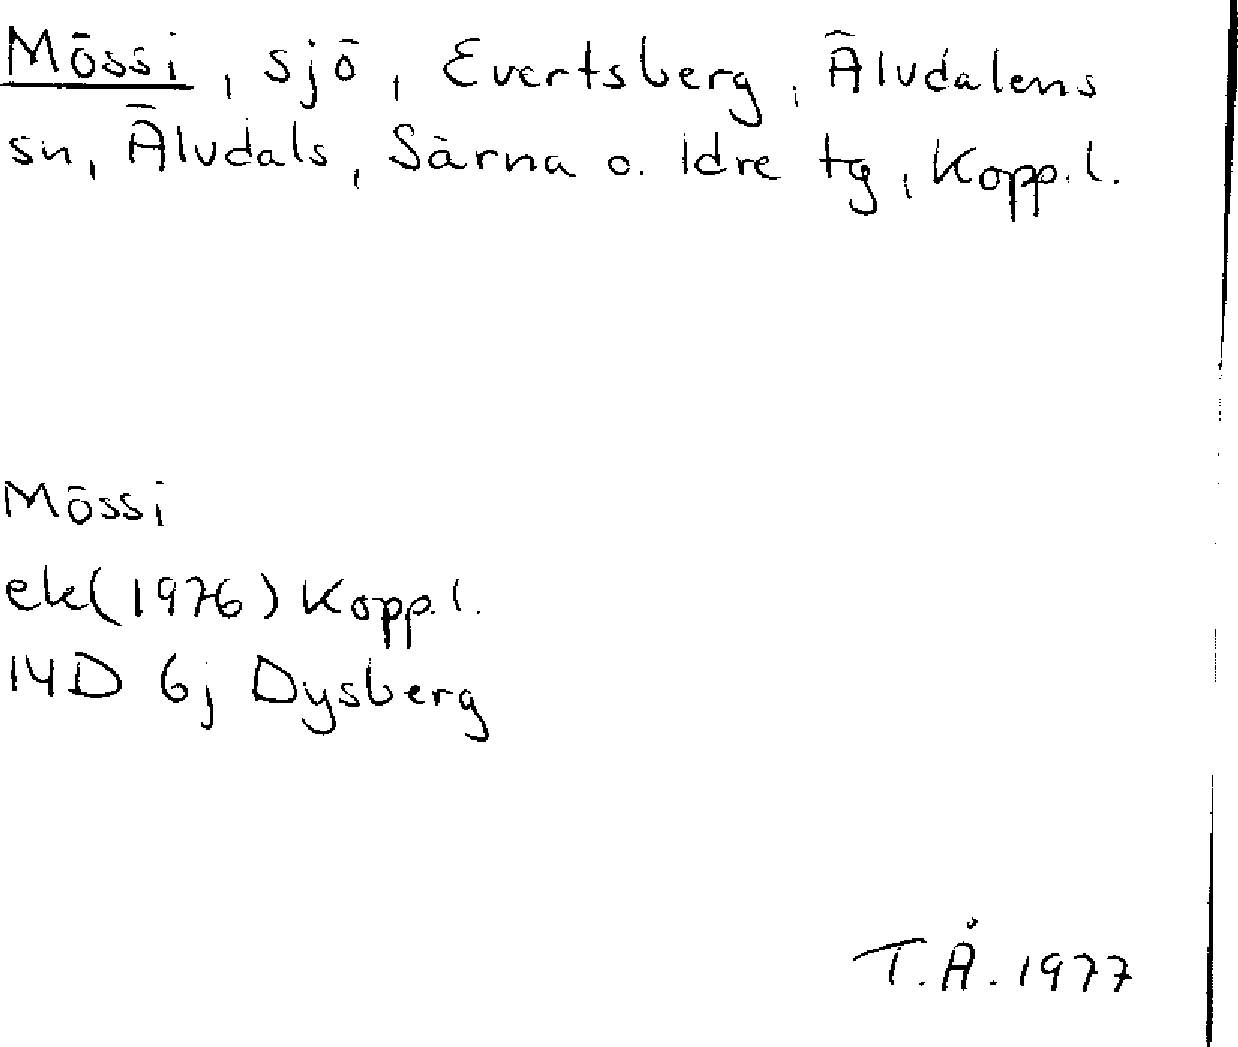 Mössi, sjö, Evertsberg, Älvdalens
sn, Älvdals, Särna o. Idre tg, Kopp. l.
Mössi
ek(1976) Kopp. l.
14D 6j Dysberg
T.Å. 1977